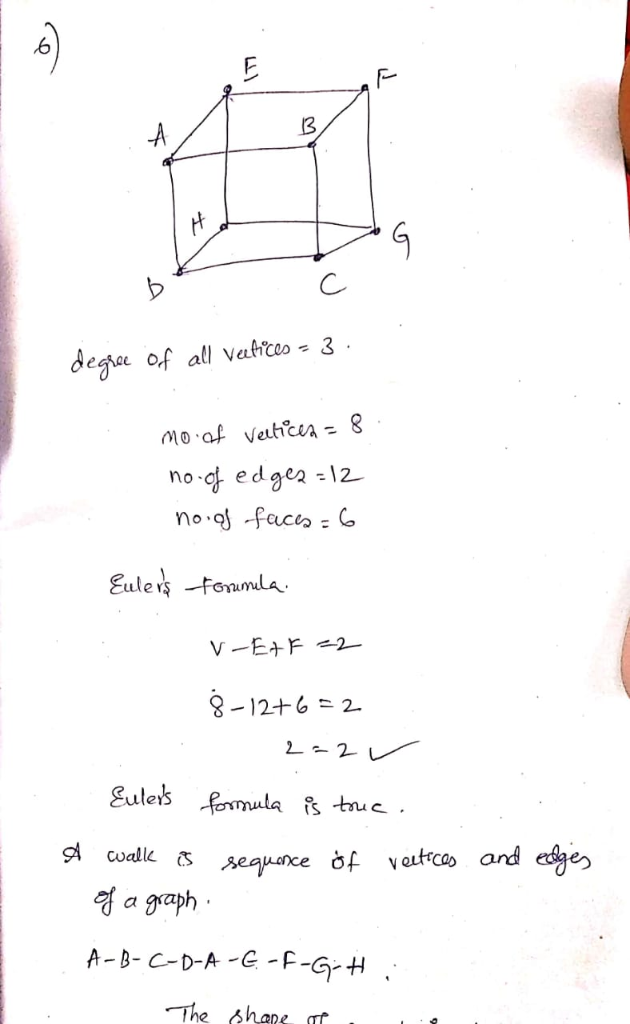 6)
E
F
A
B
H
G
D
C
degree of all vertices = 3.
no. of vertices = 8
no. of edges = 12
no. of faces = 6
Euler's formula.
V - E + F = 2
8 - 12 + 6 = 2
2 = 2 ✓
Euler's formula is true.
A walk is sequence of vertices and edges
of a graph.
A-B-C-D-A-E-F-G-H.
The shape of